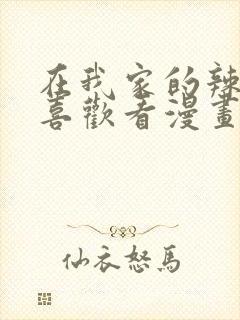 在我家的辣
喜歡看漫畫
仙衣怒馬